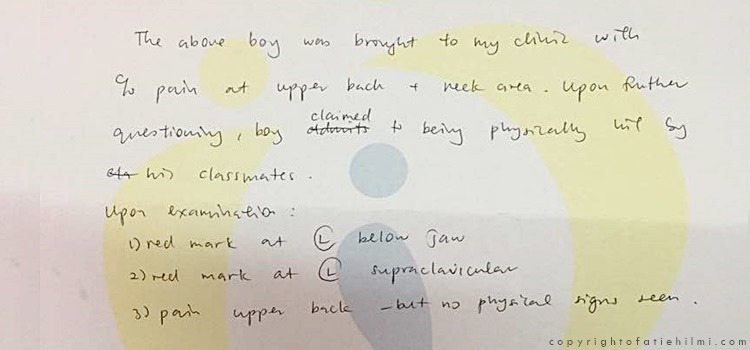 The above boy was brought to my clinic with
c/o pain at upper back + neck area. Upon further
questioning, boy claimed admits to being physically hit by
his classmates.
Upon examination :
1) red mark at Ⓛ below jaw
2) red mark at Ⓛ supraclavicular
3) pain upper back – but no physical signs seen.
copyrightofatiehilmi.com